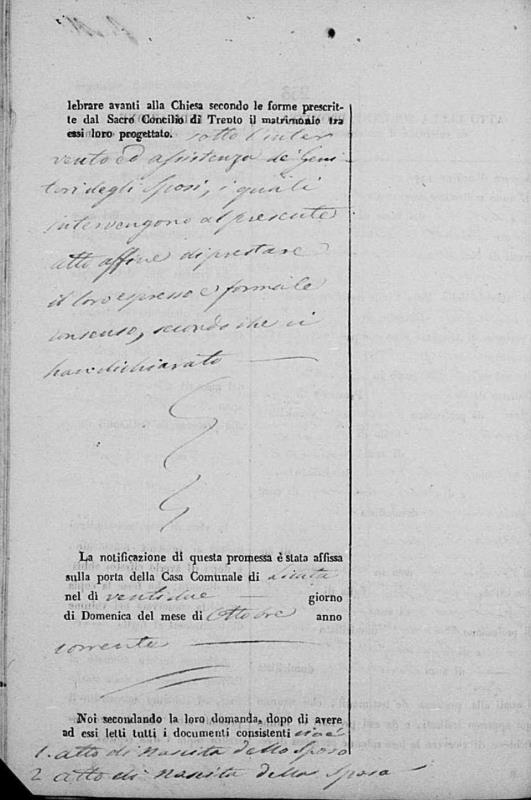 lebrare avanti alla Chiesa secondo le forme prescrit-
te dal Sacro Concilio di Trento il matrimonio tra
essi loro progettato. sotto l'inter
vento ed assistenza de' Geni
tori degli Sposi, i quali
intervengono al presente
atto affine di prestare
il loro espresso e formale
consenso, secondo che ci
han dichiarato
La notificazione di questa promessa è stata affissa
sulla porta della Casa Comunale di
nel dì ventidue giorno
di Domenica del mese di Ottobre anno
corrente
Noi secondando la loro domanda, dopo di avere
ad essi letti tutti i documenti consistenti cioè
1. atto di nascita dello Sposo
2. atto di nascita della Sposa